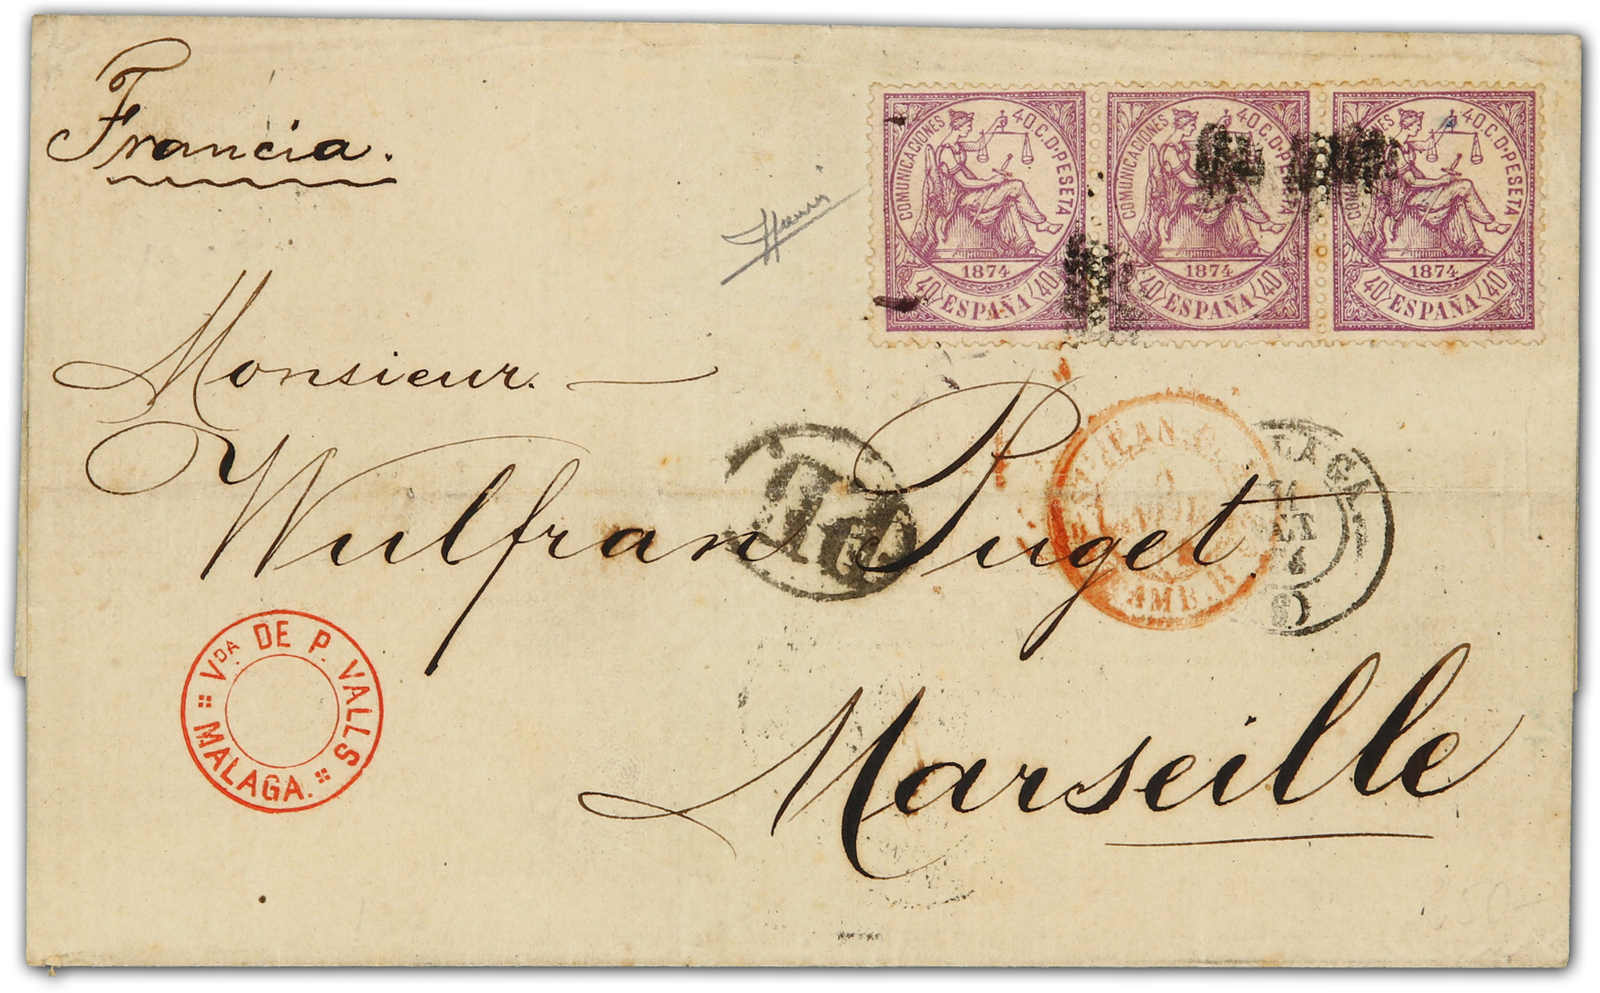 Francia.
COMUNICACIONES 40 C. D. PESETA
1874
40 ESPAÑA 40
COMUNICACIONES 40 C. D. PESETA
1874
40 ESPAÑA 40
COMUNICACIONES 40 C. D. PESETA
1874
40 ESPAÑA 40
Monsieur.
Wulfran Puget.
Marseille
PD
LAGA
SET
AMB.
Vᴰᴬ DE P. VALLS
MALAGA.